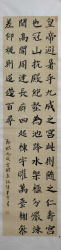 皇帝避暑乎九成之宮此則隨之仁壽宮
也冠山抗殿絕壑為池跨水架楹分巖竦
闕高閣周建長廊四起棟宇膠葛臺榭參
差仰視則迢遞百尋